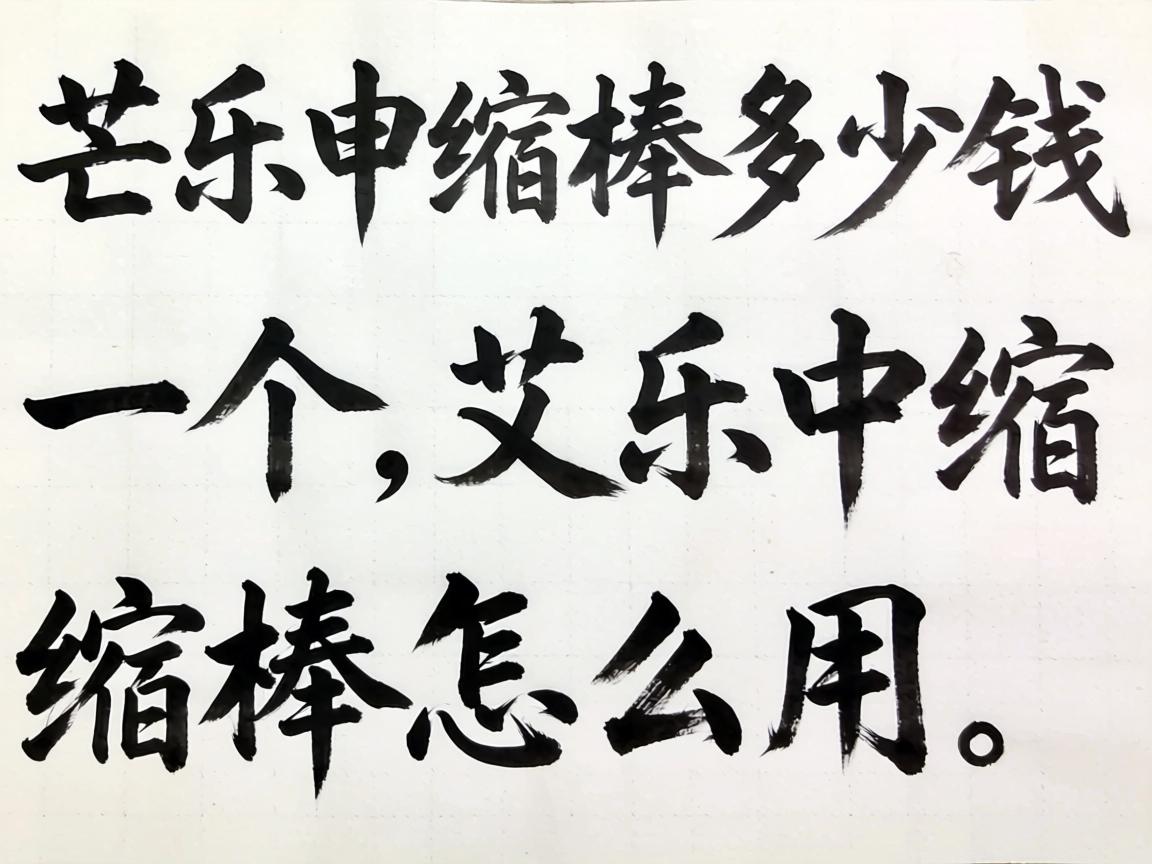 芒乐申缩棒多少钱
一个,艾乐中缩
缩棒怎么用。